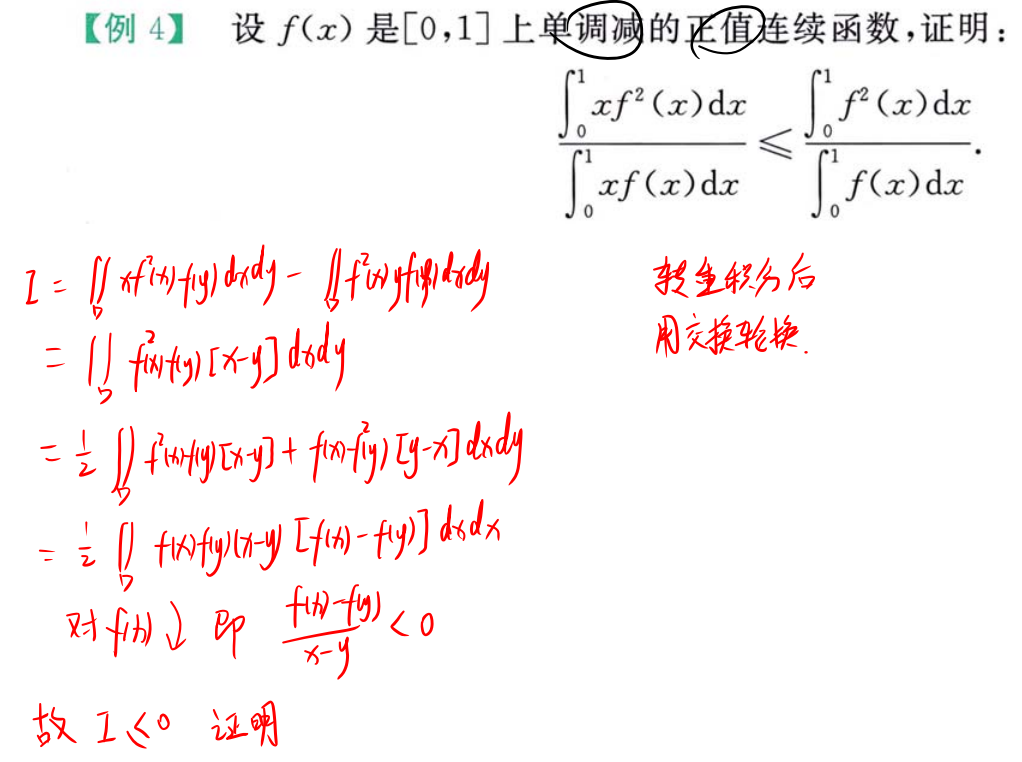 【例 4】 设 f(x) 是[0,1]上单调减的正值连续函数,证明:
\frac{\int_0^1 xf^2(x)dx}{\int_0^1 xf(x)dx} ≤ \frac{\int_0^1 f^2(x)dx}{\int_0^1 f(x)dx}.
I = ∬_D xf²(x)f(y)dxdy - ∬_D f²(x)yf(y)dxdy
转重积分后
= ∬_D f²(x)f(y)[x-y]dxdy
用交换轮换.
= \frac{1}{2} ∬_D f²(x)f(y)[x-y] + f(x)f²(y)[y-x]dxdy
= \frac{1}{2} ∬_D f(x)f(y)(x-y)[f(x)-f(y)]dxdx
对f(x)↓ 即 \frac{f(x)-f(y)}{x-y} < 0
故 I ≤ 0 证明